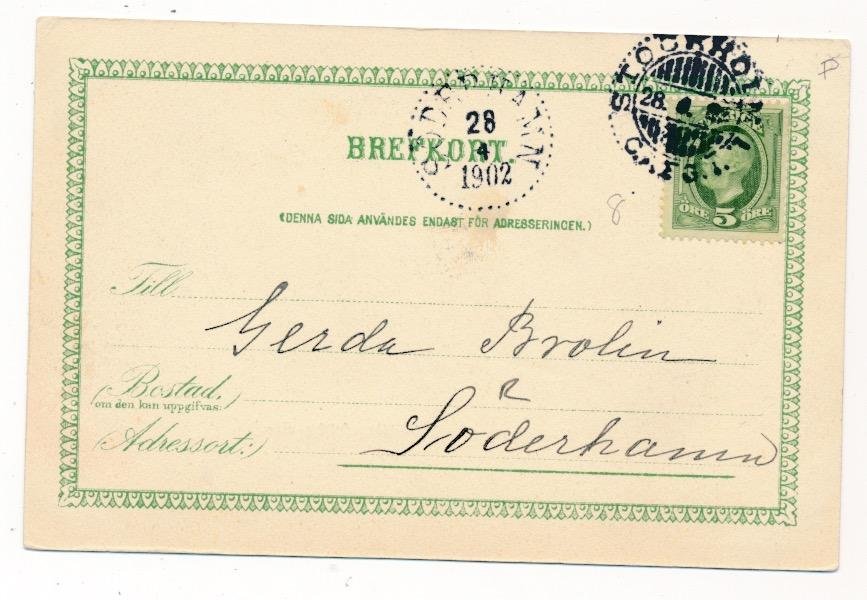 STOCKHOLM
28. 4
C. AFG. 1.
SÖDERHAMN
28
4
1902
BREFKORT.
(DENNA SIDA ANVÄNDES ENDAST FÖR ADRESSERINGEN.)
8
ÖRE 5 ÖRE
Till
Gerda Brolin
(Bostad,
om den kan uppgifvas:)
(Adressort:)
Söderhamn